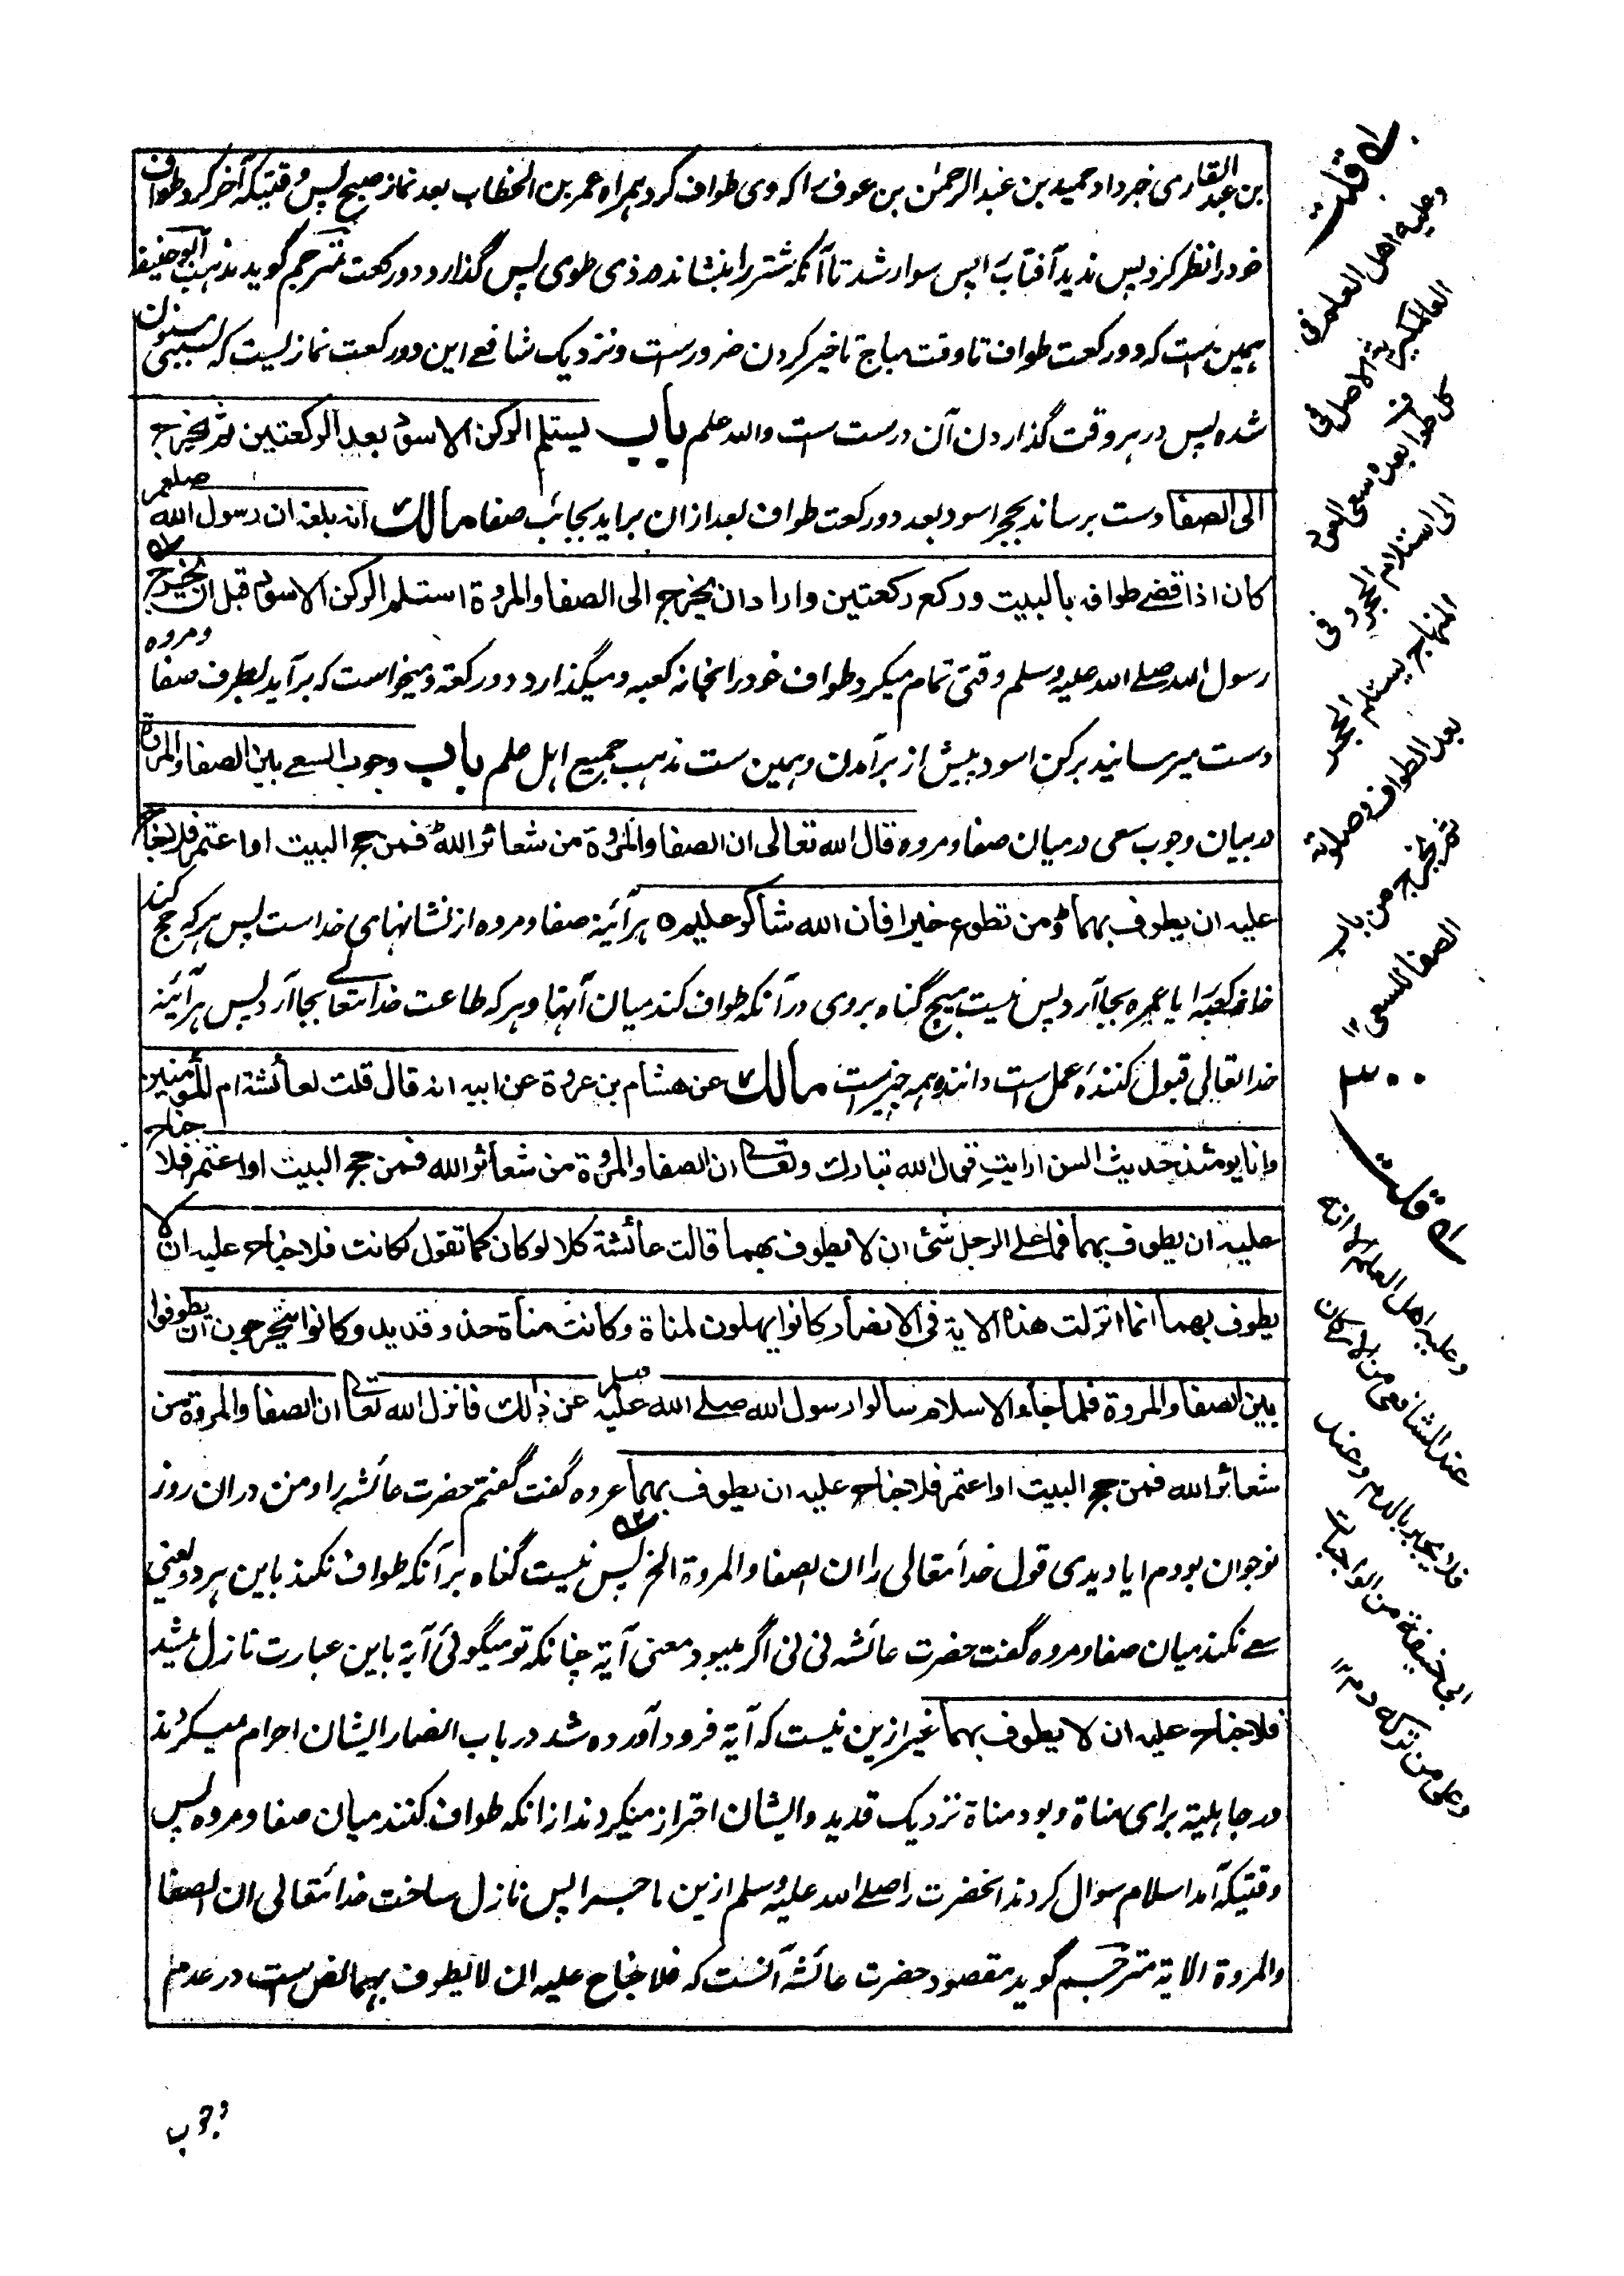 بن عبد القاری خبر داد حمید بن عبد الرحمٰن بن عوف را که وی طواف کرد همراه عمر بن الخطاب بعد نماز صبح پس وقتیکه آخر کرد طواف
خود را نظر کرد پس ندید آفتاب را پس سوار شد تا آنکه شتر را بنشاند در ذی طوی پس گذارد دو رکعت مترجم گوید مذهب ابو حنیفه
همین ست که دو رکعت طواف تا وقت مباح تاخیر کردن ضرورست و نزدیک شافعے این دو رکعت نمازیست که بسببی مسنون
شده پس در هر وقت گذاردن آن درست ست والله علم باب یستلم الرکن الاسود بعد الرکعتین ثم یخرج
الی الصفا دست برساند بحجر اسود بعد دو رکعت طواف بعد ازان براید بجانب صفا مالك انه بلغه ان رسول الله صلعم
کان اذا قضے طوافه بالبیت ورکع رکعتین واراد ان یخرج الی الصفا والمروة استلم الرکن الاسود قبل ان یخرج
رسول الله صلے الله علیه وسلم وقتی تمام میکرد طواف خود را بخانه کعبه و میگذارد دو رکعة و میخواست که برآید بطرف صفا و مروه
دست میرسانید برکن اسود پیش از برآمدن و همین ست مذهب جمیع اهل علم باب وجوب السعے بین الصفا والمروة
در بیان وجوب سعی درمیان صفا و مروه قال الله تعالی ان الصفا والمروة من شعائر الله فمن حج البیت او اعتمر فلا جناح
علیه ان یطوف بهما ومن تطوع خیرا فان الله شاکر علیم ه هر آئینه صفا و مروه از نشانهای خداست پس هر که حج کند
خانه کعبه را یا عمره بجا آرد پس نیست هیچ گناه بروی در آنکه طواف کند میان آنها و هر که طاعت خدا تعالے بجا آرد پس هر آئینه
خدا تعالی قبول کننده عمل ست داننده همه چیزست مالك عن هشام بن عروة عن ابیه انه قال قلت لعائشة ام المؤمنین
وانا یومئذ حدیث السن ارایتِ قول الله تبارك وتعالے ان الصفا والمروة من شعائر الله فمن حج البیت او اعتمر فلا جناح
علیه ان یطوف بهما فما علی الرجل شئ ان لا یطوف بهما قالت عائشة کلا لو کان کما تقول لکانت فلا جناح علیه ان لا
یطوف بهما انما انزلت هذه الایة فی الانصار کانوا یهلون لمناة وکانت مناة حذو قدید وکانوا یتحرجون ان یطوفوا
بین الصفا والمروة فلما جاء الاسلام سالوا رسول الله صلے الله علیه وسلم عن ذلك فانزل الله تعالے ان الصفا والمروة من
شعائر الله فمن حج البیت او اعتمر فلا جناح علیه ان یطوف بهما عروه گفت گفتم حضرت عائشه را و من دران روز
نوجوان بودم ایا دیدی قول خدا تعالی را ان الصفا والمروة الخ پس نیست گناه بر آنکه طواف نکند باین هر دو یعنی
سعے نکند میان صفا و مروه گفت حضرت عائشه نی نی اگر میبود معنی آیة چنانکه تو میگوئی آیة باین عبارت نازل میشد
فلا جناح علیه ان لا یطوف بهما غیر ازین نیست که آیة فرود آورده شد در باب انصار ایشان احرام میکردند
در جاهلیة برای مناة و بود مناة نزدیک قدید و ایشان احتراز میکردند ازانکه طواف کنند میان صفا و مروه پس
وقتیکه آمد اسلام سوال کردند انحضرت را صلے الله علیه وسلم ازین ماجرا پس نازل ساخت خدا تعالی ان الصفا
والمروة الایة مترجم گوید مقصود حضرت عائشه آنست که فلا جناح علیه ان لا یطوف بهما نص است در عدم
وجوب
قلت
وعلیه اهل العلم فی
العالمکیریة الاصل فی
کل طواف بعده سعی العود
الی استلام الحجر و فی
المنهاج یستلم الحجر
بعد الطواف وصلوته
ثم یخرج من باب
الصفا للسعی ١٢
قلت
وعلیه اهل العلم انه
عند الشافعی من الارکان
فلا یجبر بالدم وعند
ابی حنیفة من الواجبات
وعلی من ترکه دم ١٢